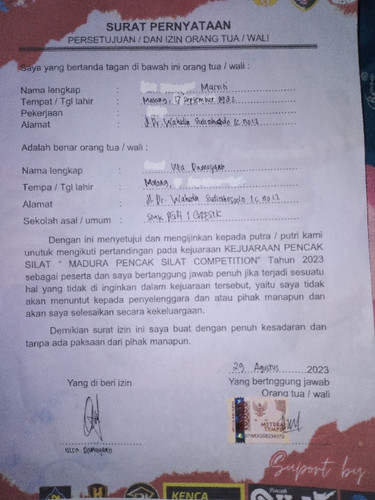 SURAT PERNYATAAN
PERSETUJUAN / DAN IZIN ORANG TUA / WALI
Saya yang bertanda tagan di bawah ini orang tua / wali :
Nama lengkap :
Tempat / Tgl lahir : Malang, 17 September 1982
Pekerjaan :
Alamat : Jl. Dr. Wahidin Sudirohusodo 1c no 12
Adalah benar orang tua / wali :
Nama lengkap :
Tempa / Tgl lahir : Malang,
Alamat : Jl. Dr. Wahidin Sudirohusodo 1c no 12
Sekolah asal / umum : SMK PGRI 1 GRESIK
Dengan ini menyetujui dan mengijinkan kepada putra / putri kami
unutuk mengikuti pertandingan pada kejuaraan KEJUARAAN PENCAK
SILAT " MADURA PENCAK SILAT COMPETITION" Tahun 2023
sebagai peserta dan saya bertanggung jawab penuh jika terjadi sesuatu
hal yang tidak di inginkan dalam kejuaraan tersebut, yaitu saya tidak
akan menuntut kepada penyelenggara dan atau pihak manapun dan
akan saya selesaikan secara kekeluargaan.
Demikian surat izin ini saya buat dengan penuh kesadaran dan
tanpa ada paksaan dari pihak manapun.
29 Agustus 2023
Yang di beri izin
Yang bertnggung jawab
Orang tua / wali
METERAI
TEMPEL
Suport by
KENCA